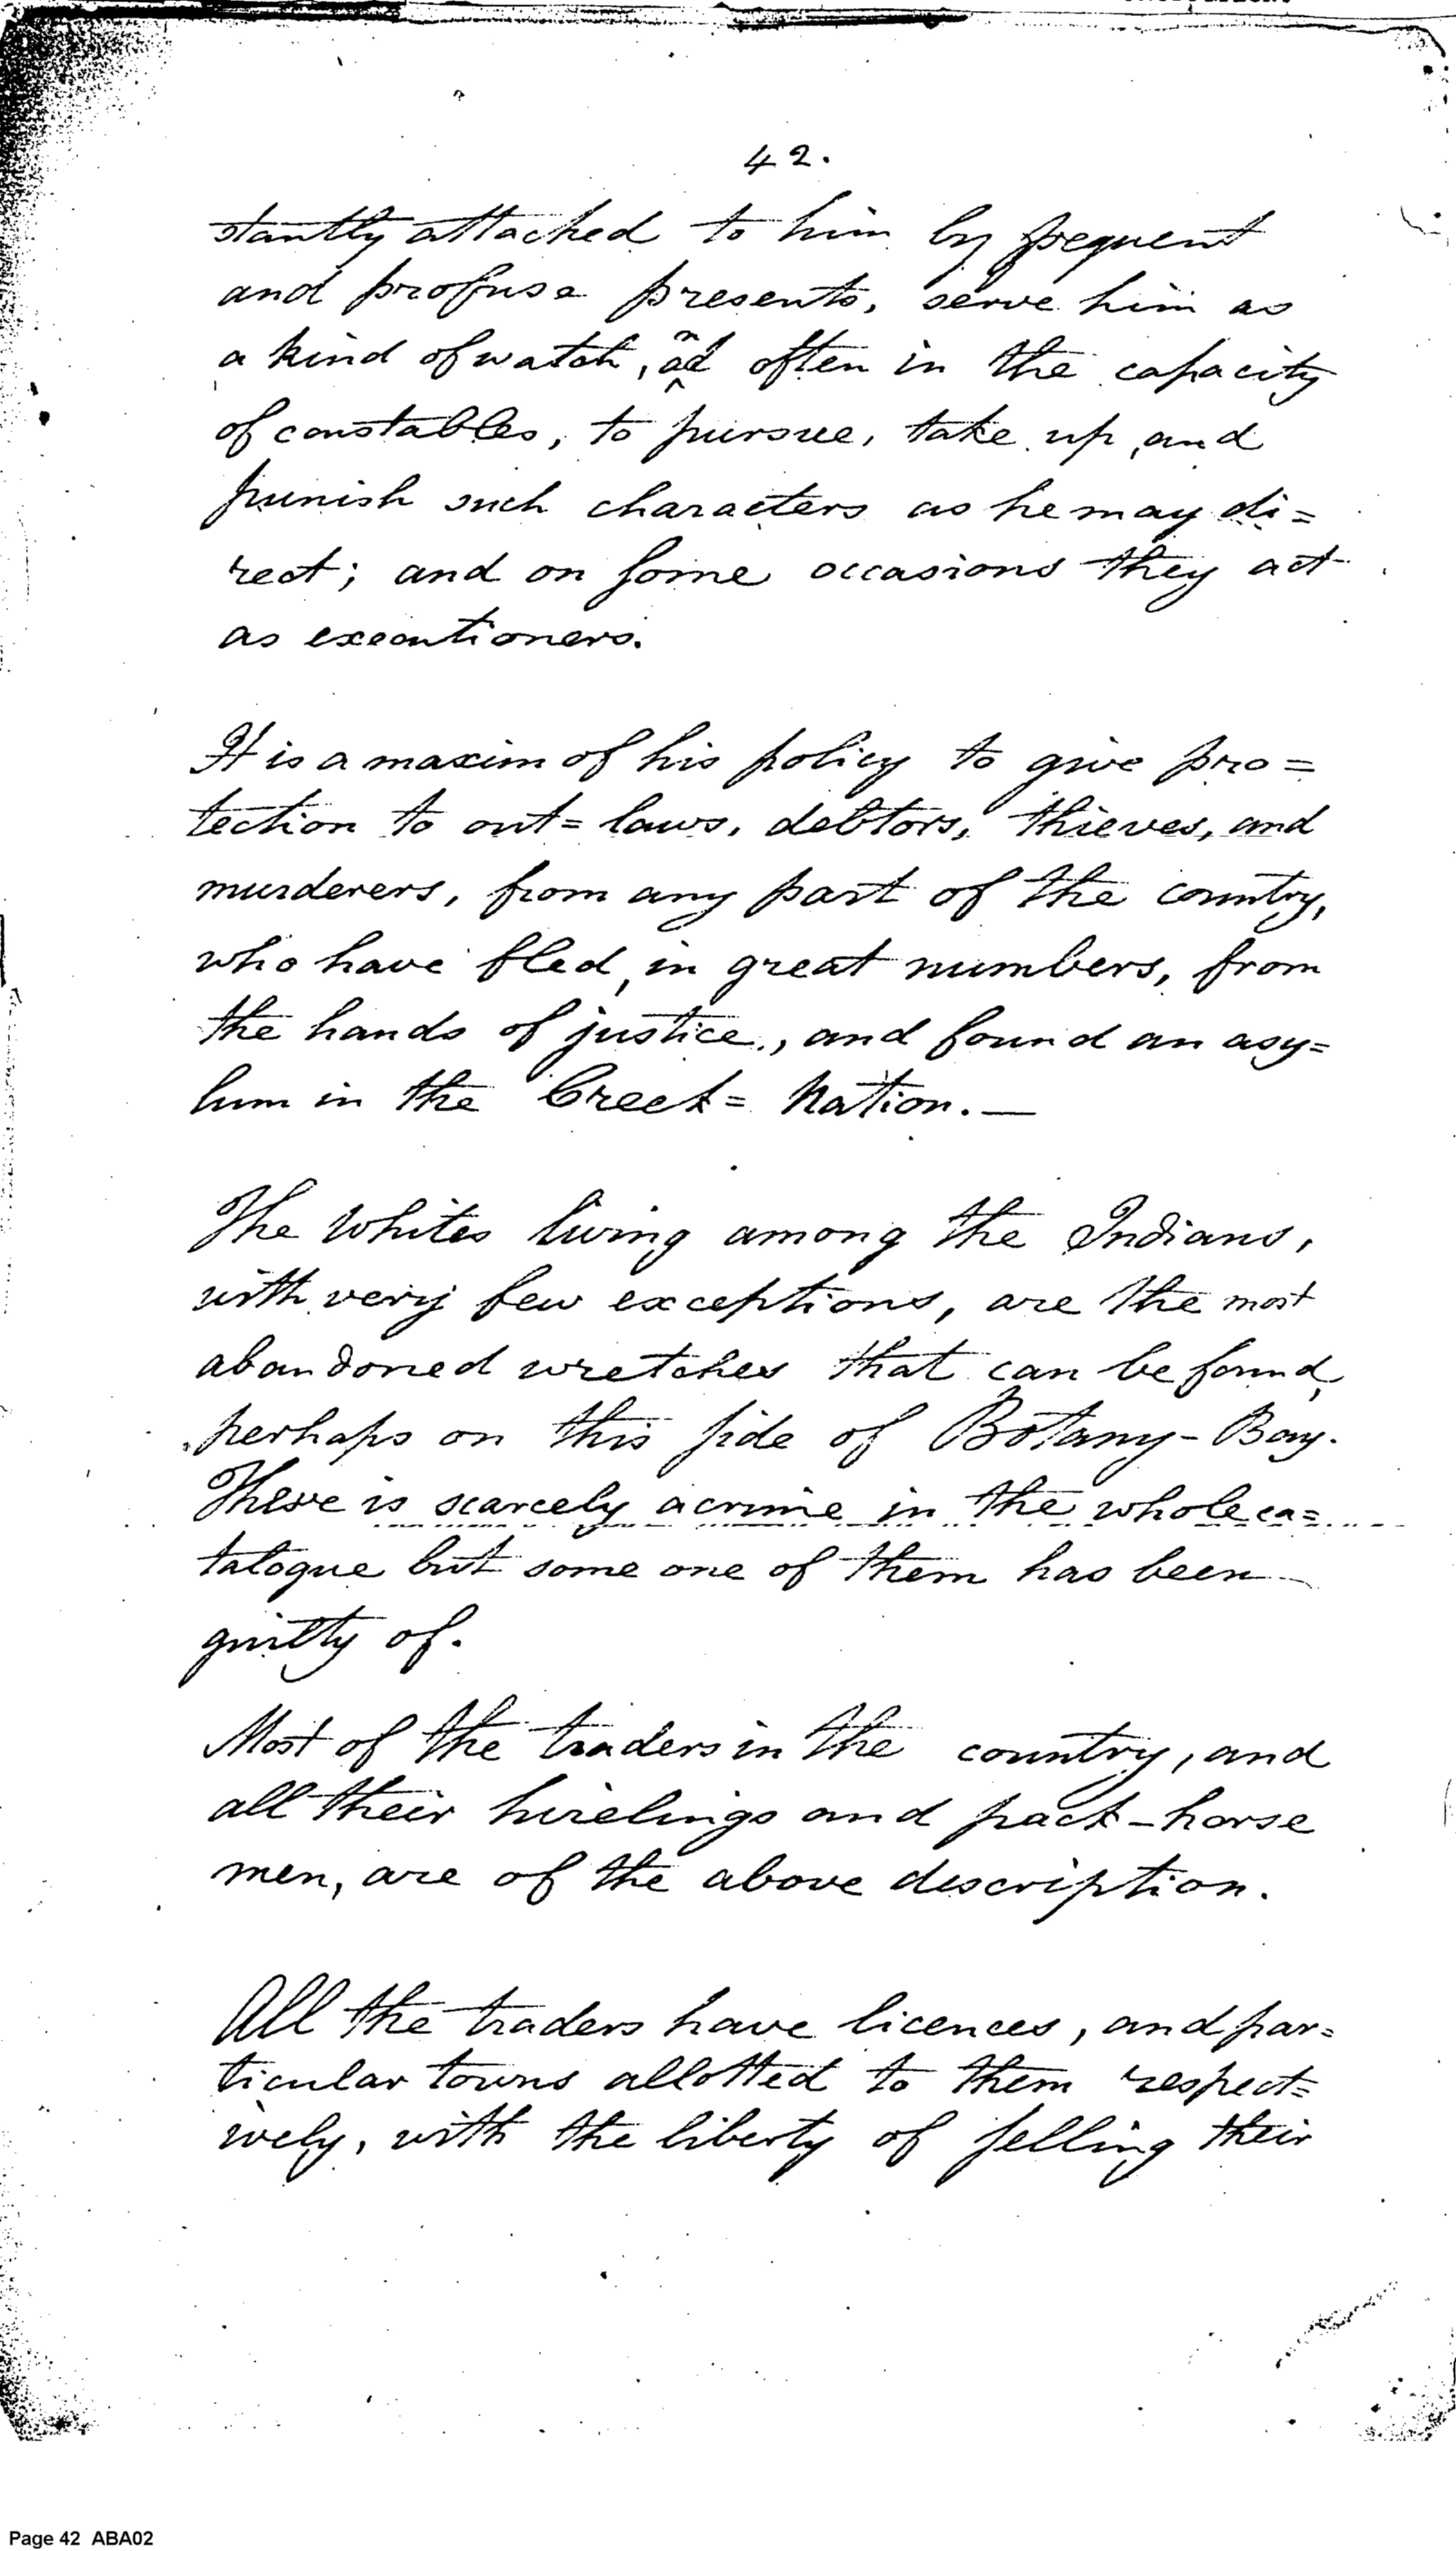 42.
stantly attached to him by frequent
and profuse presents, serve him as
a kind of watch, and often in the capacity
of constables, to pursue, take up, and
punish such characters as he may di=
rect; and on some occasions they act
as executioners.
It is a maxim of his policy to give pro=
tection to out=laws, debtors, thieves, and
murderers, from any part of the country,
who have fled, in great numbers, from
the hands of justice, and found an asy=
lum in the Creek=Nation.—
The Whites living among the Indians,
with very few exceptions, are the most
abandoned wretches that can be found,
perhaps on this side of Botany-Bay.
There is scarcely a crime in the whole ca=
talogue but some one of them has been
guilty of.
Most of the traders in the country, and
all their hirelings and pack-horse
men, are of the above description.
All the traders have licences, and par=
ticular towns allotted to them respect=
ively, with the liberty of selling their
Page 42 ABA02